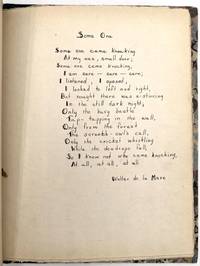 Some One
Some one came knocking
At my wee, small door;
Some one came knocking,
I am sure - sure - sure;
I listened, I opened,
I looked to left and right,
But nought there was a-stirring
In the still dark night;
Only the busy beetle
Tap-tapping in the wall,
Only from the forest
The screech-owl's call,
Only the cricket whistling
While the dewdrops fall,
So I know not who came knocking,
At all, at all, at all.
Walter de la Mare